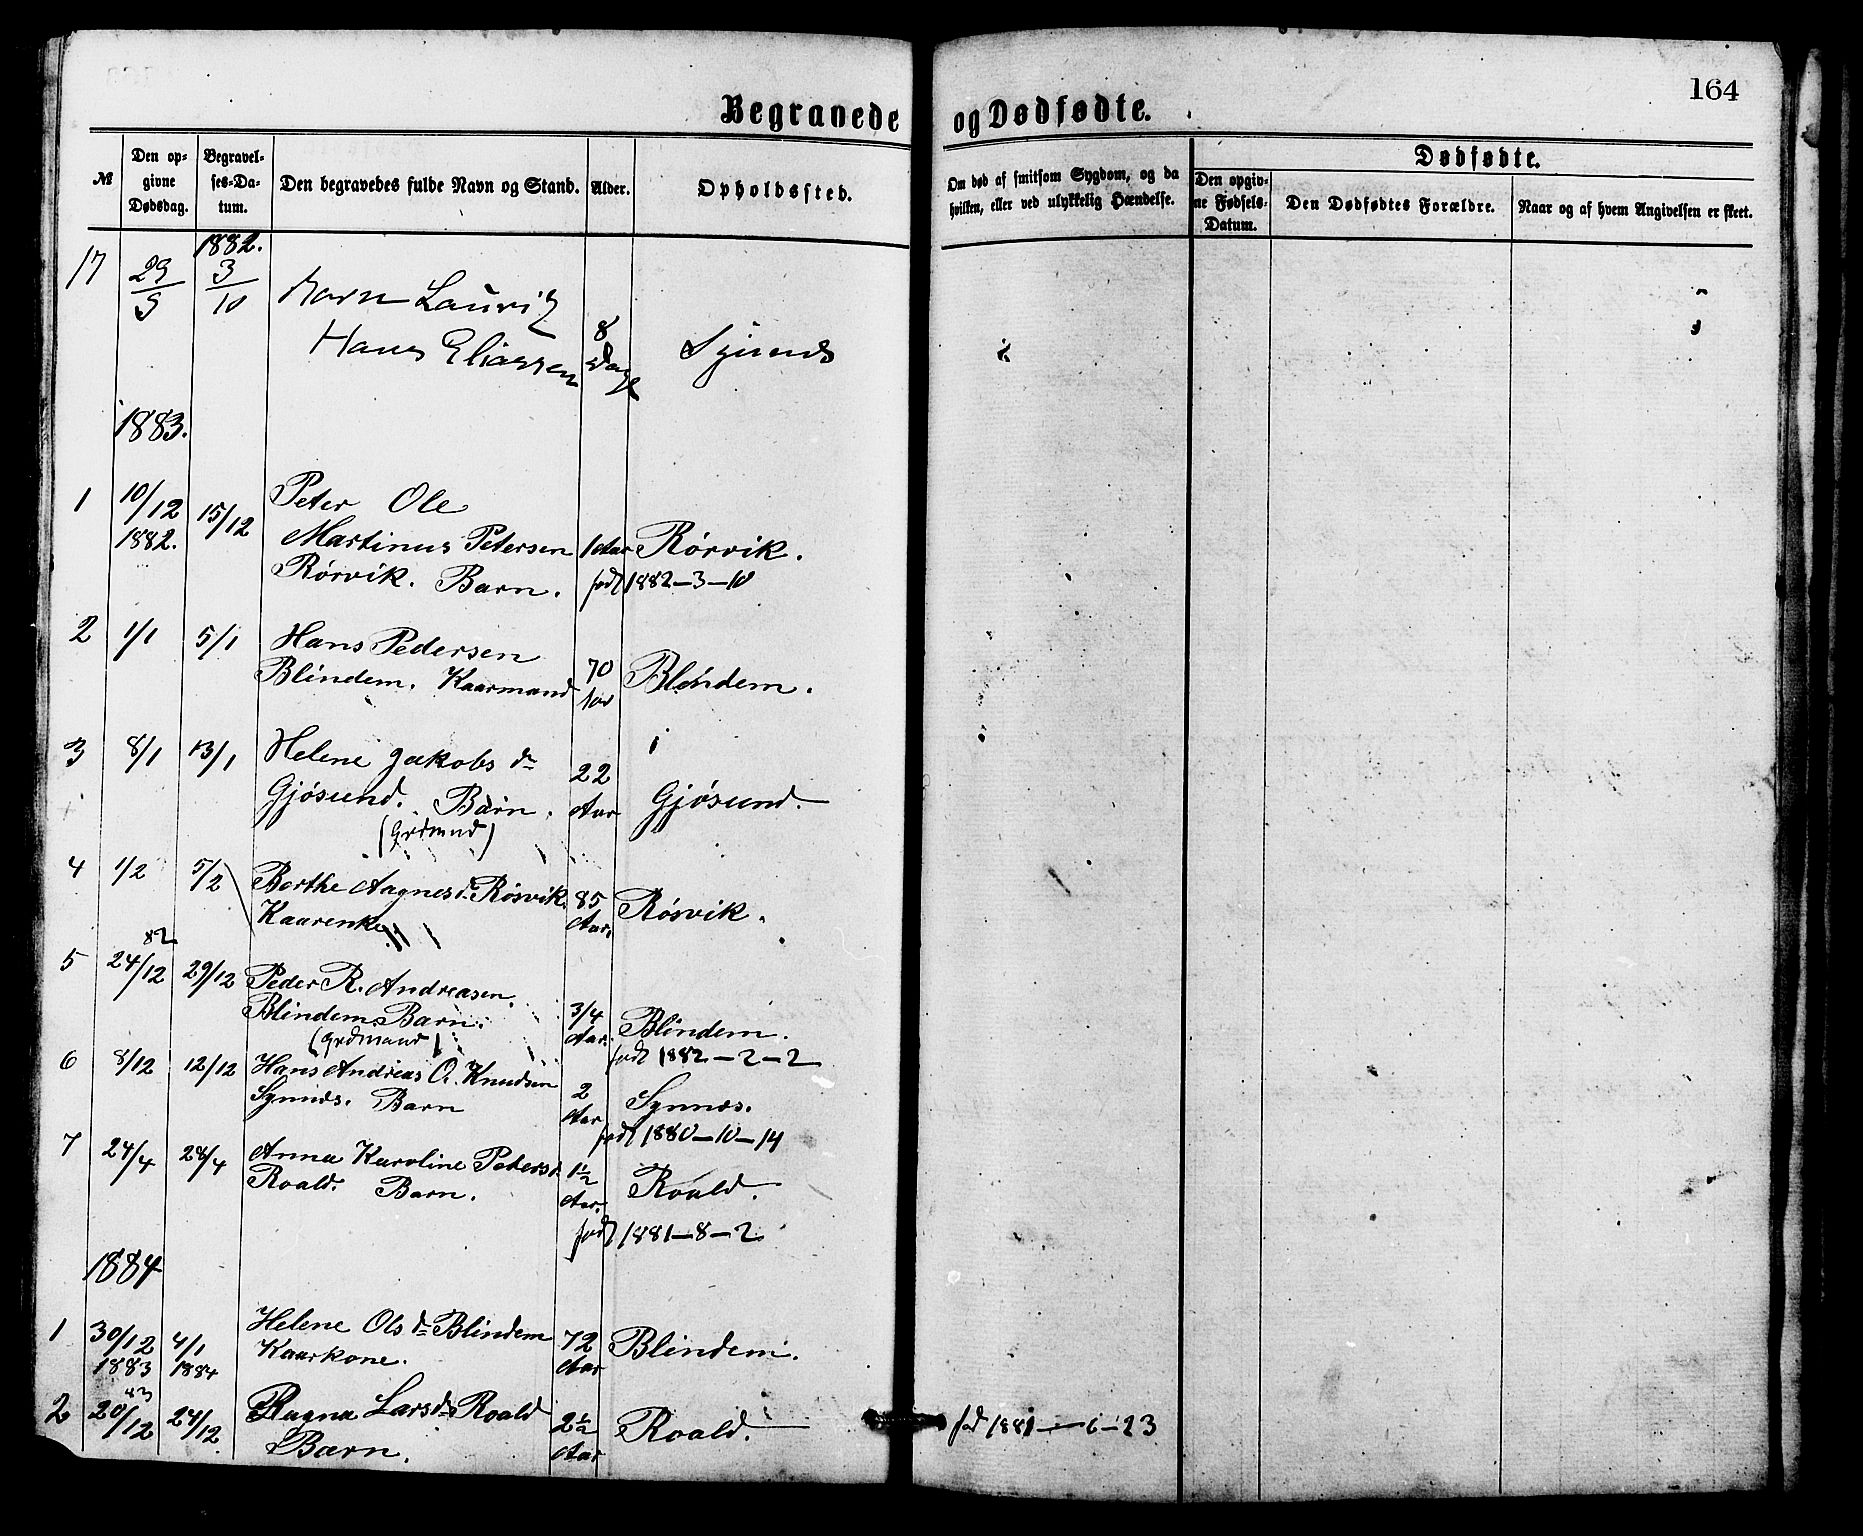 Begravede og Dødfødte.
164
№
Den opgivne Dødsdag.
Begravelses-Datum.
Den begravedes fulde Navn og Stand.
Alder.
Opholdssted.
Om død af smitsom Sygdom, og da
hvilken, eller ved ulykkelig Hændelse.
Dødfødte.
Den opgivne Fødsels-Datum.
Den Dødfødtes Forældre.
Naar og af hvem Angivelsen er skeet.
1882.
17 29/9 3/10 Barn Lauritz
Hans Eliassen 8 Dage Synnes
1883.
1 10/12 1882. 15/12 Peter Ole
Martinus Petersen 1 Aar Rørvik.
Rørvik. Barn. født 1882-3-10
2 1/1 5/1 Hans Pedersen
Blindem. Kaarmand 70 Aar Blindem.
3 8/1 13/1 Helene Jakobs dr
Gjøsund. Barn. 22 Aar Gjøsund.
(Grdmand)
4 1/2 5/2 Berthe Aagnes d. Røsvik. 85 Aar. Røsvik.
Kaarenke
5 24/12 82 29/12 Peder R. Andreasen.
Blindem. Barn. 3/4 Aar. Blindem.
(Grdmand) født 1882-2-2
6 8/12 12/12 Hans Andreas O. Knudsen
Synnes. Barn 2 Aar Synnes.
født 1880-10-14
7 24/4 28/4 Anna Karoline Petersd.
Roald. Barn. 1½ Aar. Roald.
født 1881-8-2
1884
1 30/12 1883 4/1 1884 Helene Ols dr Blindem
Kaarkone. 72 Aar Blindem.
2 20/12 83 24/12 Ragna Lars dr Roald
Barn. 2½ Aar Roald. fød 1881-6-23